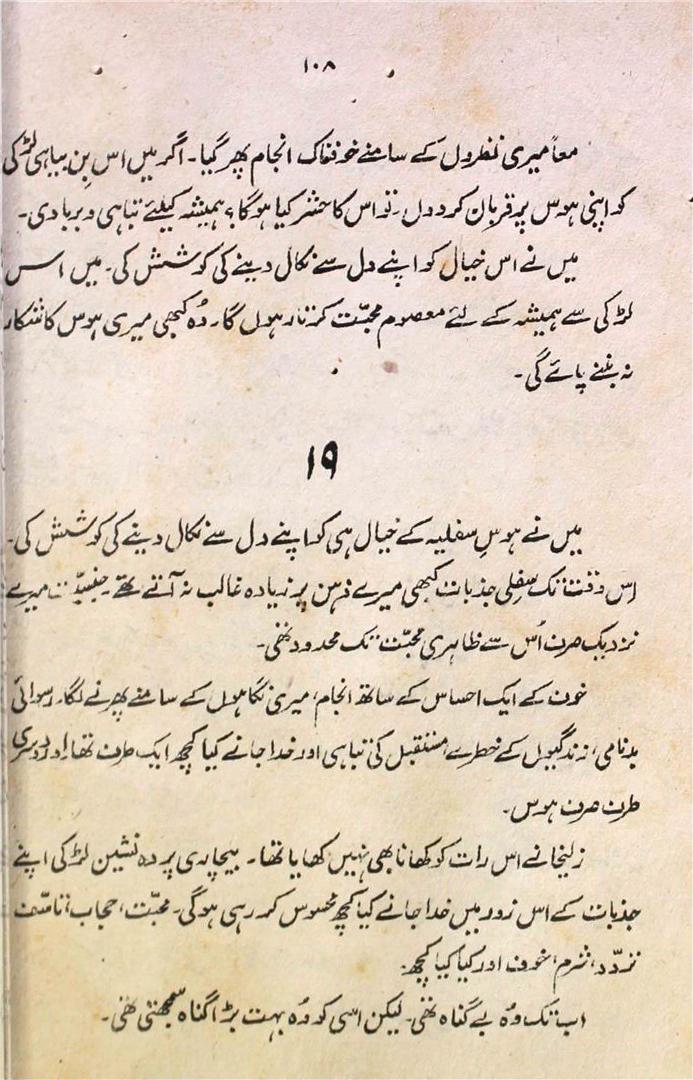 ۱۰۸
معاً میری نظروں کے سامنے خوفناک انجام پھر گیا۔ اگر میں اس بِن بیاہی لڑکی
کو اپنی ہوس پر قربان کر دوں۔ تو اس کا حشر کیا ہو گا؟ ہمیشہ کیلئے تباہی و بربادی۔
میں نے اس خیال کو اپنے دل سے نکال دینے کی کوشش کی۔ میں اس
لڑکی سے ہمیشہ کے لئے معصوم محبّت کرتا رہوں گا۔ وُہ کبھی میری ہوس کا شکار
نہ بننے پائے گی۔
۱۹
میں نے ہوسِ سفلیہ کے خیال ہی کو اپنے دل سے نکال دینے کی کوشش کی۔
اس وقت تک سفلی جذبات کبھی میرے ذہن پر زیادہ غالب نہ آتے تھے۔ جنسیّت میرے
نزدیک صرف اُس سے ظاہری محبّت تک محدود تھی۔
خون کے ایک احساس کے ساتھ انجام، میری نگاہوں کے سامنے پھرنے لگا۔ رسوائی
بدنامی، زندگیوں کے خطرے، مستقبل کی تباہی اور خدا جانے کیا کچھ ایک طرف تھا۔ اور دوسری
طرف صرف ہوس۔
زلیخا نے اس رات کو کھانا بھی نہیں کھایا تھا۔ بیچاری پردہ نشین لڑکی اپنے
جذبات کے اس زور میں خدا جانے کیا کچھ محسوس کر رہی ہو گی۔ محبّت، حجاب، تاسّف
تردّد، شرم، خوف اور کیا کیا کچھ۔
اب تک وُہ بے گناہ تھی۔ لیکن اسی کو وُہ بہت بڑا گناہ سمجھتی تھی۔